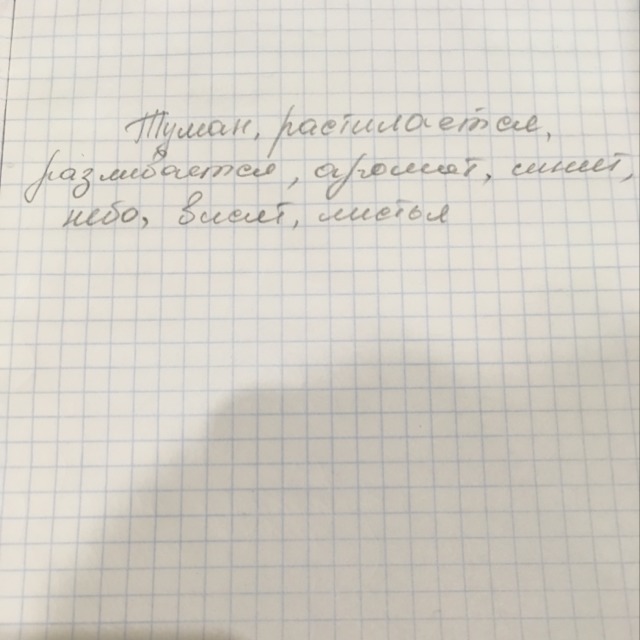 Туман, растилается,
разливается, аромат, синеет,
небо, висят, листья